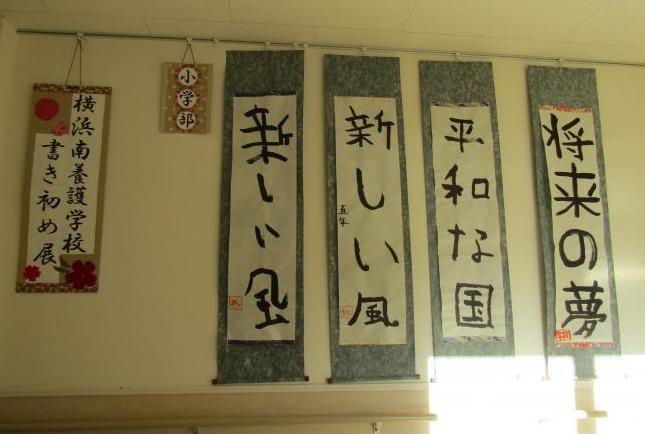 横浜南養護学校
書き初め展
小学部
新しい風
新しい風
五年
平和な国
将来の夢